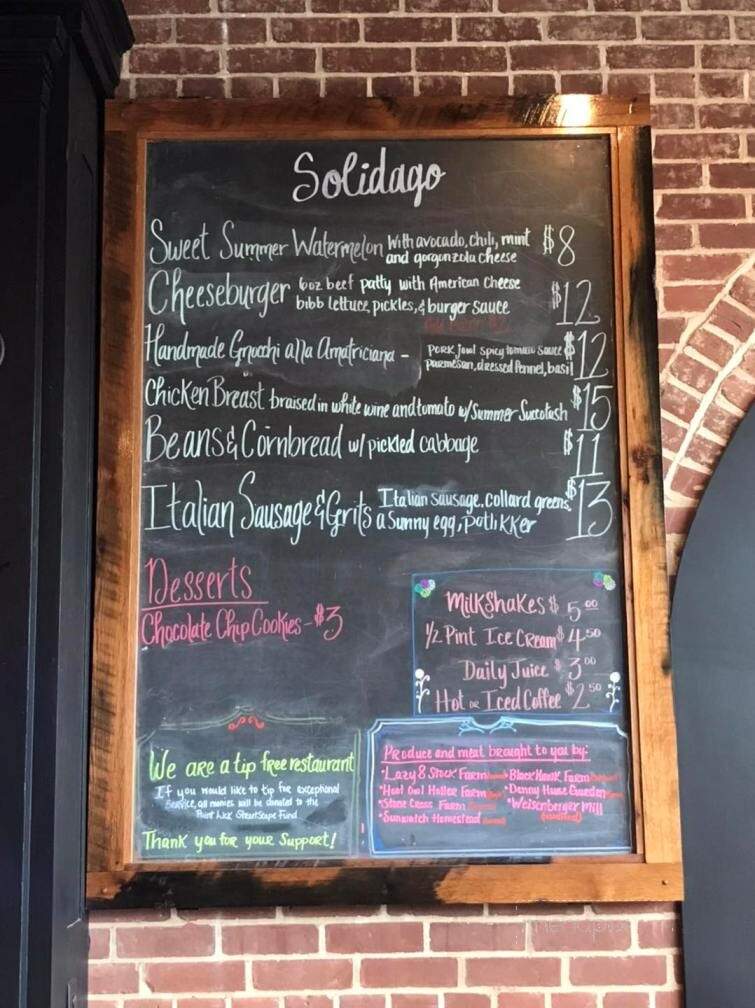 Solidago
Sweet Summer Watermelon with avocado, chili, mint $8
and gorgonzola cheese
Cheeseburger 6oz beef patty with American Cheese $12
bibb lettuce, pickles, & burger sauce
Handmade Gnocchi alla Amatriciana - Pork jowl spicy tomato sauce $12
parmesan, dressed fennel, basil
Chicken Breast braised in white wine and tomato w/ Summer Succotash $15
Beans & Cornbread w/ pickled cabbage $11
Italian Sausage & Grits Italian sausage, collard greens, $13
a Sunny egg, potlikker
Desserts
Chocolate Chip Cookies - $3
Milkshakes $5.00
1/2 Pint Ice Cream $4.50
Daily Juice $3.00
Hot or Iced Coffee $2.50
We are a tip free restaurant
If you would like to tip for exceptional
Service, all monies will be donated to the
Paint Lick StreetScape Fund
Thank you for your Support!
Produce and meat brought to you by:
*Lazy 8 Stock Farm *Black Hawk Farm
*Hoot Owl Holler Farm *Denny Hume Garden
*Stone Cross Farm *Weisenberger Mill
*Sunwatch Homestead